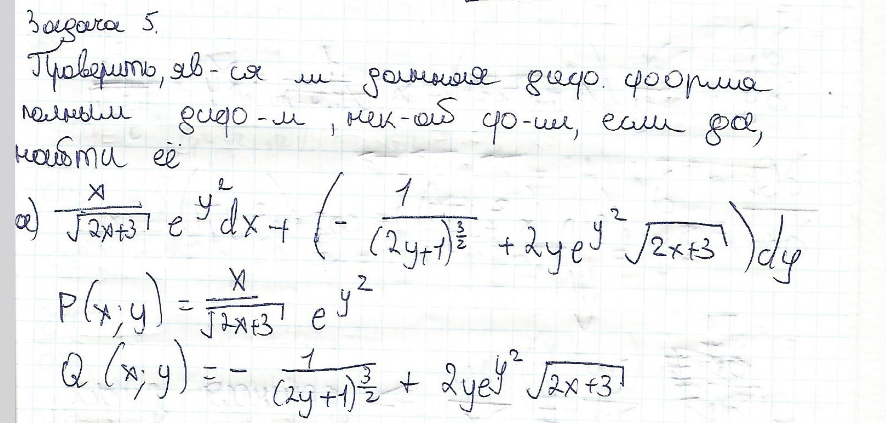 Задача 5.
Проверить, яв-ся ли данная дифф. форма
полным дифф-м, нек-ой ф-ии, если да,
найти её
а) x/√(2x+3) e^(y^2) dx + (- 1/(2y+1)^(3/2) + 2ye^(y^2) √(2x+3)) dy
P(x;y) = x/√(2x+3) e^(y^2)
Q(x;y) = - 1/(2y+1)^(3/2) + 2ye^(y^2) √(2x+3)